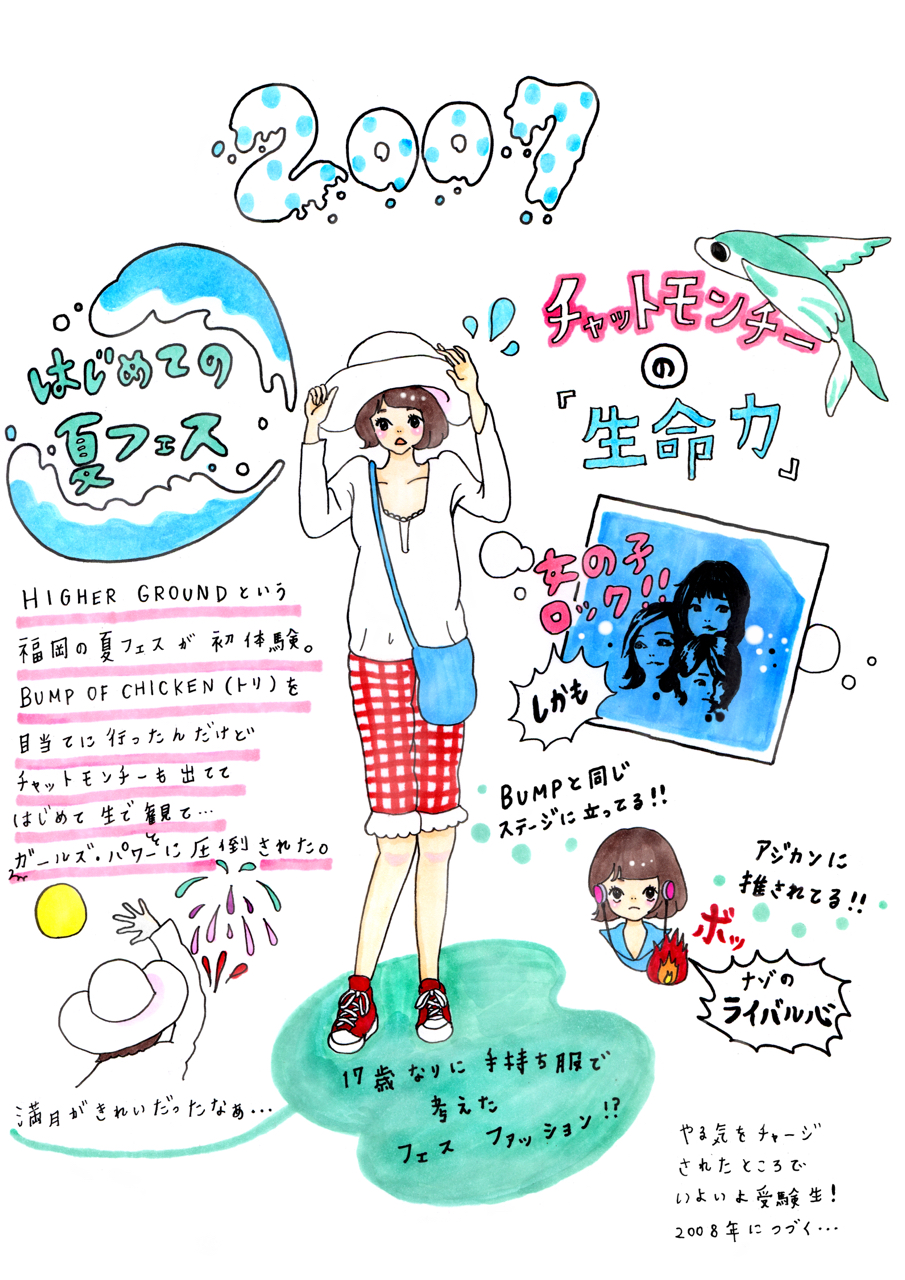 2007
はじめての
夏フェス
HIGHER GROUNDという
福岡の夏フェスが初体験。
BUMP OF CHICKEN(トリ)を
目当てに行ったんだけど
チャットモンチーも出てて
はじめて生で観て…
ガールズ・パワーに圧倒された。
満月がきれいだったなぁ…
チャットモンチー
の
『生命力』
女の子
ロック!!
しかも
BUMPと同じ
ステージに立ってる!!
アジカンに
推されてる!!
ボッ
ナゾの
ライバル心
17歳なりに手持ち服で
考えた
フェスファッション!?
やる気をチャージ
されたところで
いよいよ受験生!
2008年につづく…